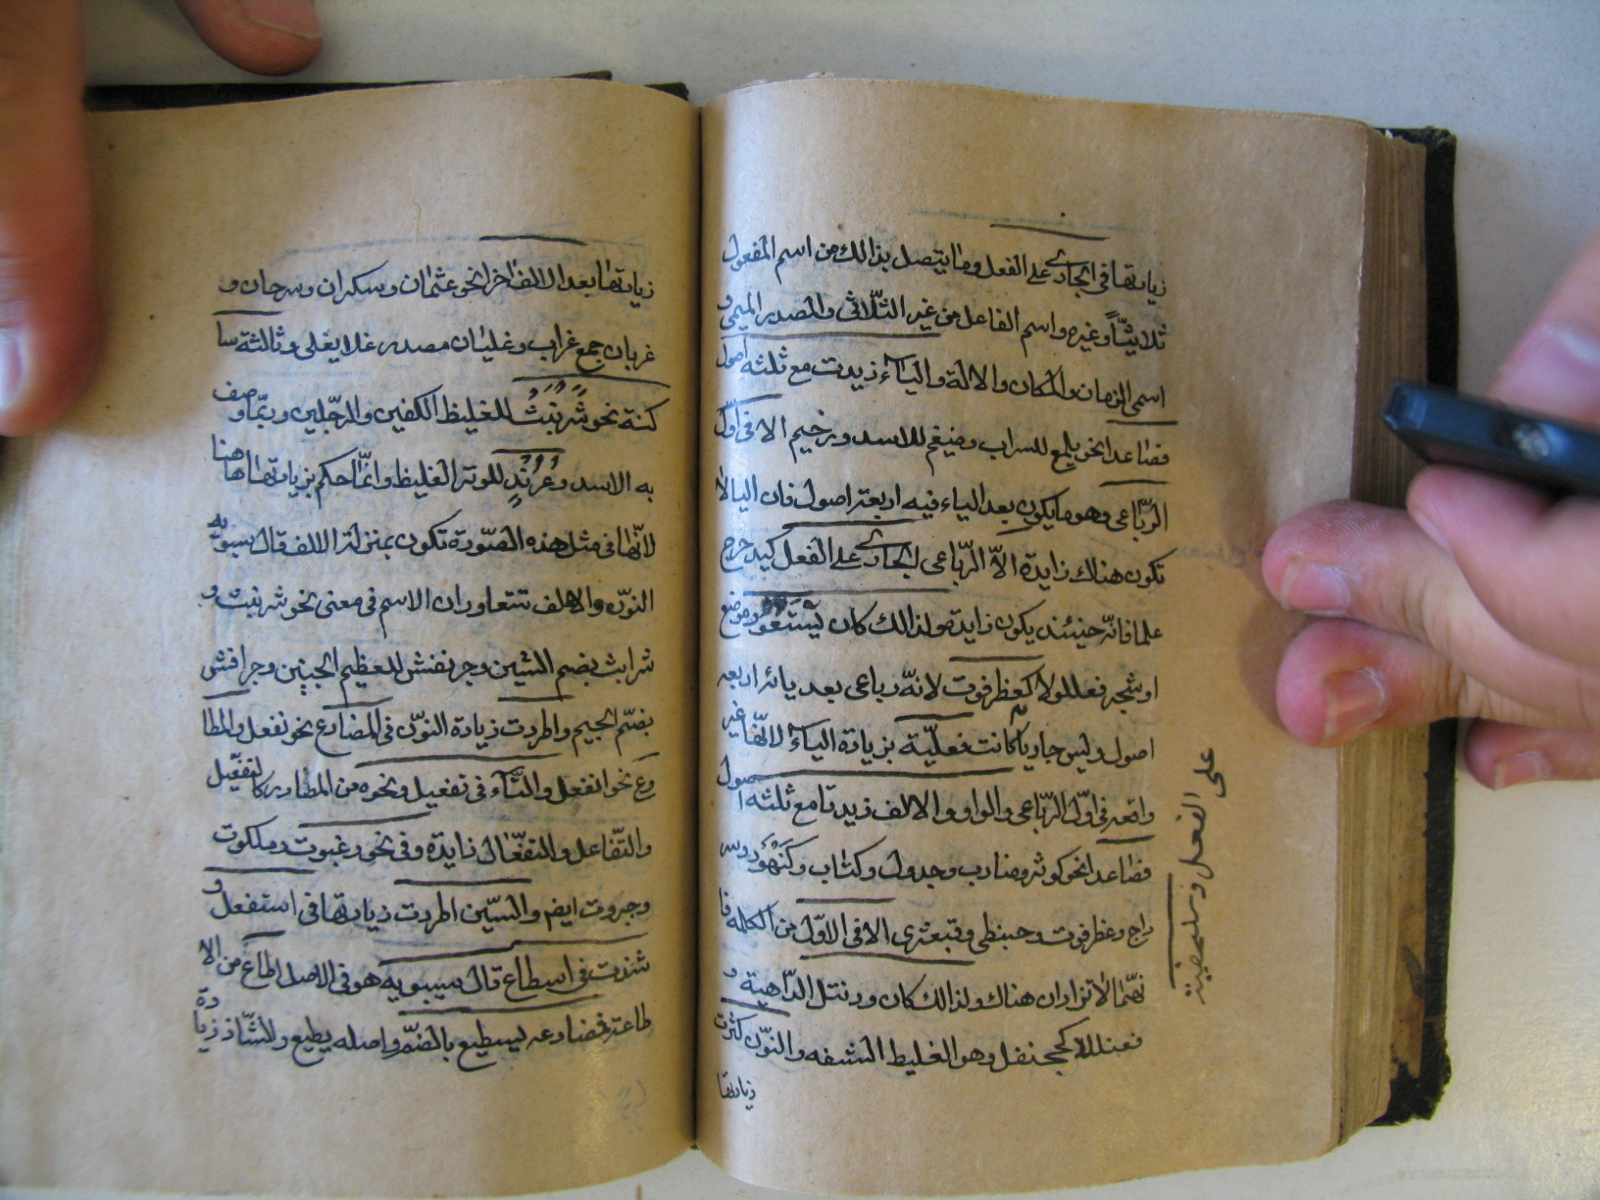 زيادتها في الجاري على الفعل وما يتصل بذالك من اسم المفعول
ثلاثيّاً وغيره واسم الفاعل من غير الثّلاثي والمصدر الميمي و
اسمي الزمان والمكان والالة والياء زيدت مع ثلثه اصول
فصاعدا نحو يلمع للسراب وضيغم للاسد ورخيم الا في اوّل
الرّباعي وهو ما يكون بعد الياء فيه اربعة اصول فان اليا لا
تكون هناك زايدة الاّ الرّباعي الجاري على الفعل كيدحرج
علما فانّه حينئذ يكون زايدة ولذالك كان يستعور موضع
او شجر فعللولا كعظرفوت لانّه رباعي بعد يائه اربعه
اصول وليس جاريا كانت فعليّة بزيادة الياء لانّها غير
واقعة في اوّل الرّباعي والواو والالف زيدتا مع ثلثه اصول
فصاعدا نحو كوثر وضارب وجدول وكتاب وكنهور وس
راج وعظرفوت وحبنطى وقبعثرى الا في الاوّل من الكلمه فا
نهّما لا تزادان هناك ولذالك كان ورنتل الدّاهية و
فعنللا كجحنفل وهو الغليط الشفه والنوّن كثرت
زيادتها
على الفعل وسلحفية
زيادتها بعد الالف اخرا نحو عثمان وسكران وسرحان و
غربان جمع غراب وغليان مصدر غلا يغلي وثالثة سا
كنة نحو شرنبث للغليظ الكفين والرجّلين وربمّا وصف
به الاسد وعرند للوتر الغليظ وانمّا حكم بزيادتها هاهنا
لانّها في مثل هذه الصّورة تكون بمنزلة الالف قال سيبويه
النوّن والالف تتعاوران الاسم في معنى نحو شرنبث و
شرابث بضم الشين وجرنفش للعظيم الجنبين وجرافش
بضّم الجيم واطردت زيادة النوّن في المضارع نحو نفعل والمطا
وع نحو انفعل والتّاء في تفعيل ونحوه من المصادر كالتفعّيل
والتّفاعل والتفعّال زايدة وفي نحو رغبوت وملكوت
وجبروت ايضم والسّين اطردت زيادتها في استفعل و
شذت في اسطاع قال سيبويه هو في الاصل اطاع من الا
طاعة فمضارعه يسطيع بالضّم واصله يطيع والشّاذ زيا
دة